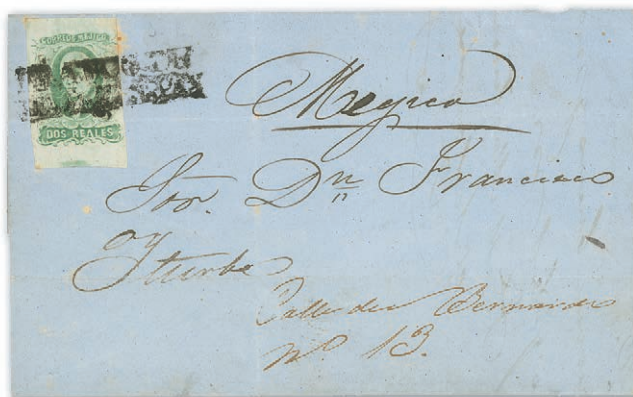 CORREOS MEJICO
DOS REALES
Megico
Sor. Dn Francisco
Yturbe
Calle de
no 13.